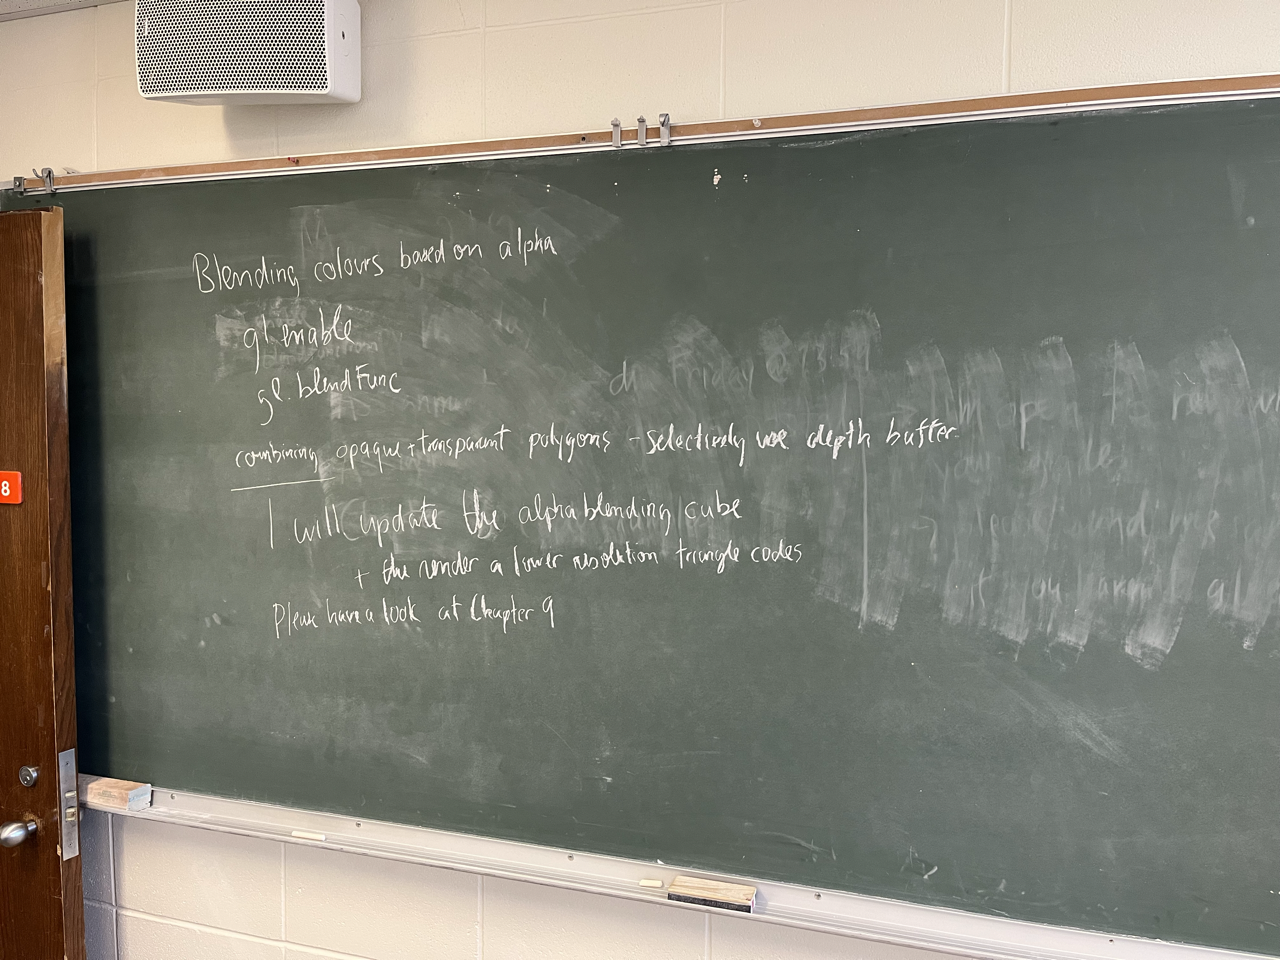 Blending colours based on alpha
gl enable
gl.blendFunc
combining opaque + transparent polygons - selectively use depth buffer.
I will update the alphablending cube
+ the render a lower resolution triangle codes
Please have a look at Chapter 9
Friday @
open to
8